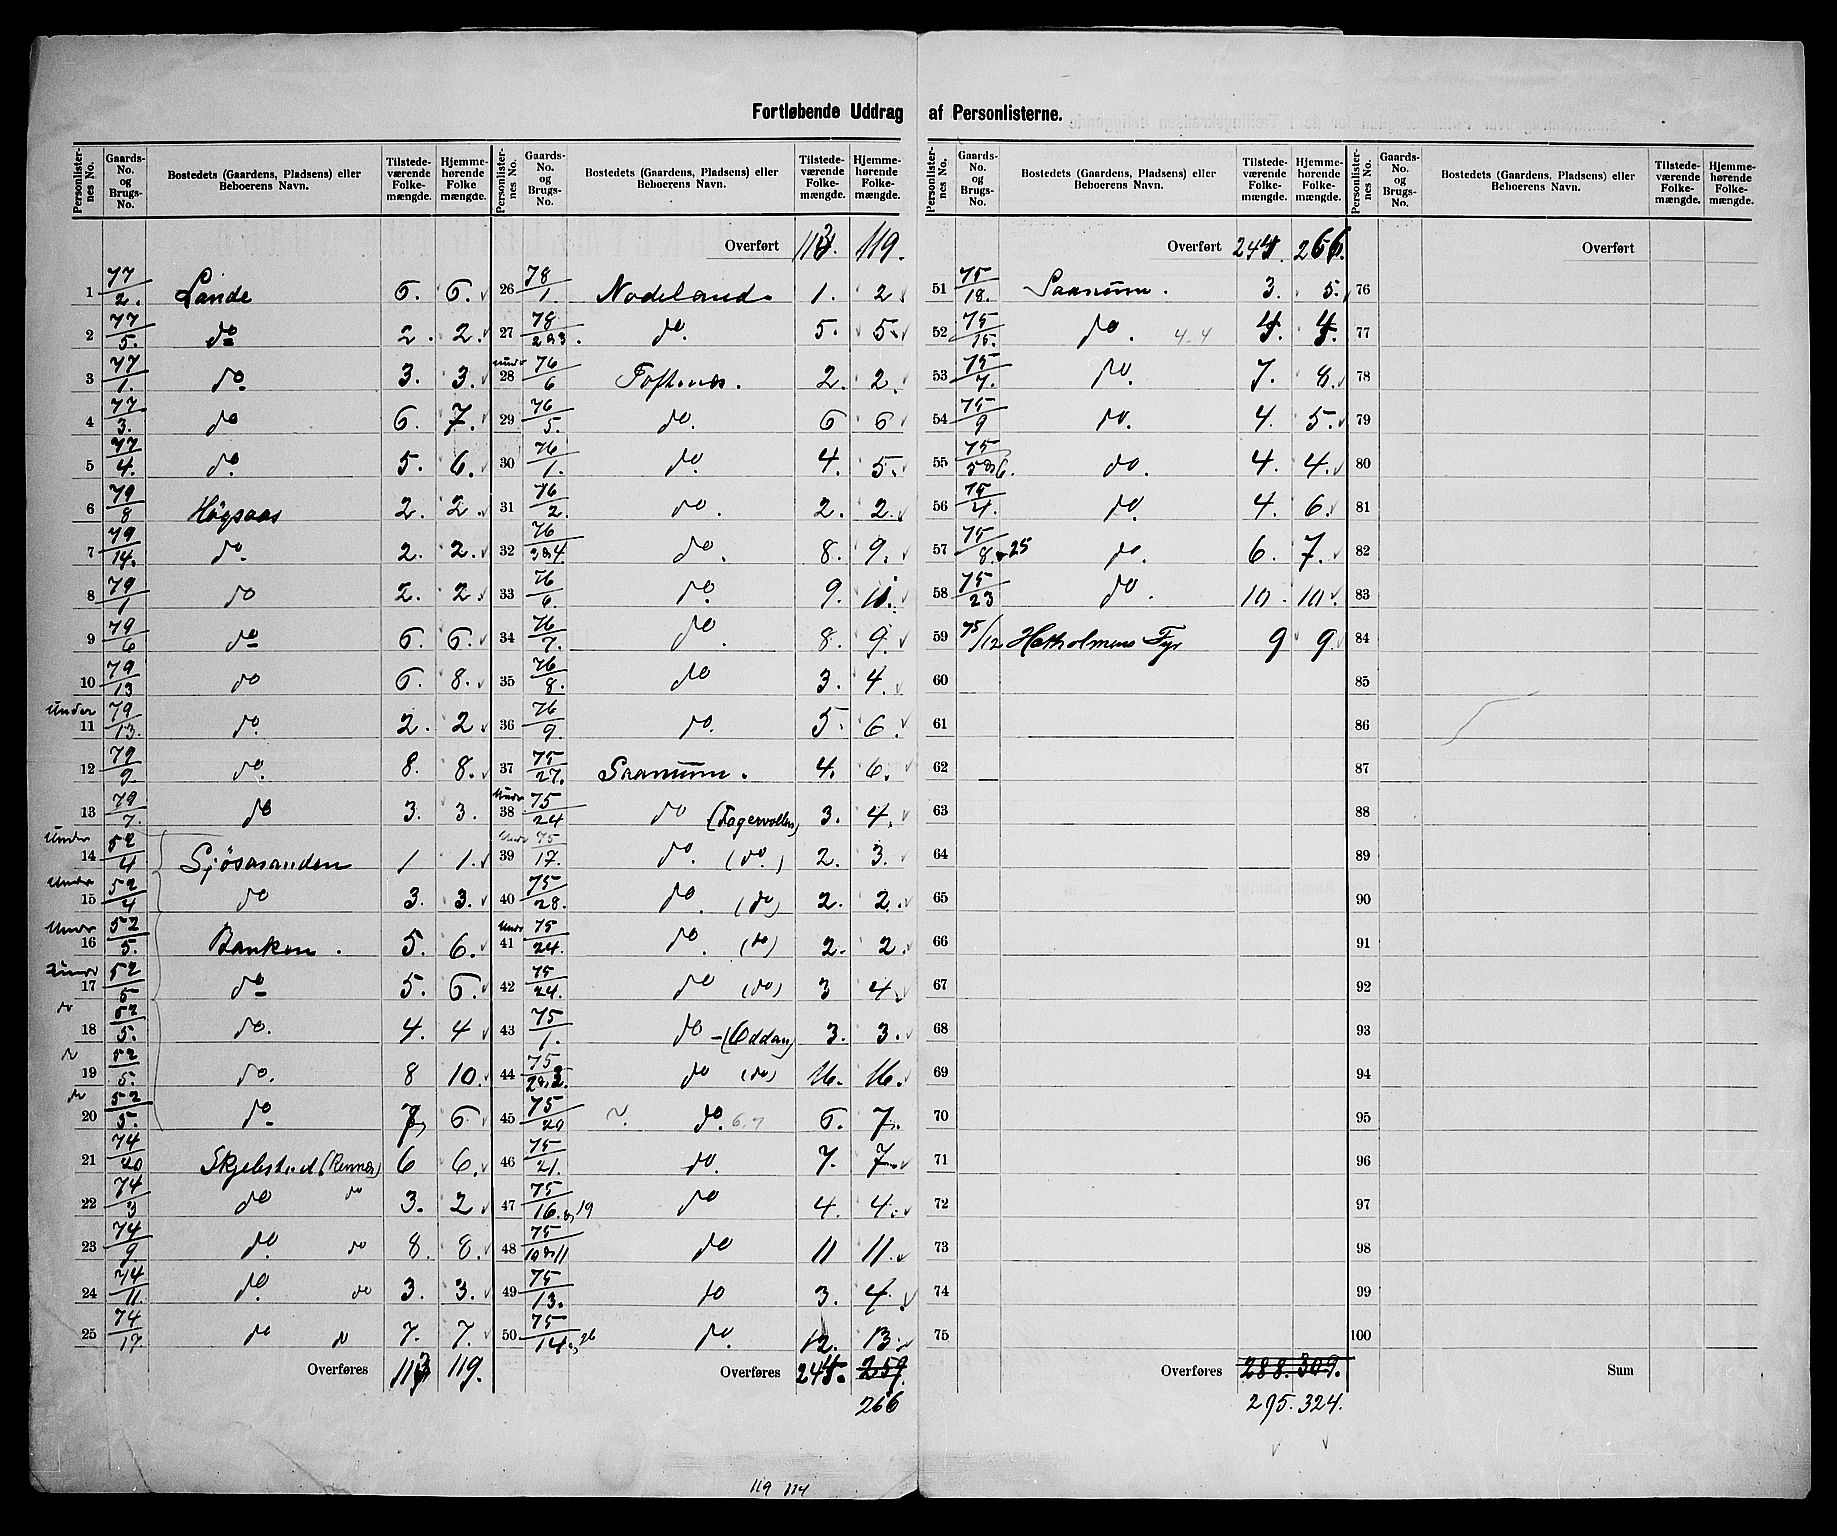 Fortløbende Uddrag af Personlisterne.
Personlisternes No. Gaards-No. og Brugs-No. Bostedets (Gaardens, Pladsens) eller Beboerens Navn. Tilstedeværende Folkemængde. Hjemmehørende Folkemængde.
1 77/2. Lande 6. 6.
2 77/5. do 2. 2.
3 77/1. do. 3. 3.
4 77/3. do 6. 7.
5 77/4. do. 5. 6.
6 79/8 Høgsaas 2. 2.
7 79/14. do. 2. 2.
8 79/1 do 2. 2.
9 79/6 do 6. 6.
10 79/13 do 6. 8.
Under 11 79/13. do. 2. 2
12 79/9. do. 8. 8.
13 79/7. do 3. 3.
Under 14 52/4 Sjøsanden 1 1.
Under 15 52/4 do 3. 3.
Under 16 52/5. Banken. 5. 6.
Under 17 52/5 do 5. 6.
do 18 52/5. do. 4. 4
19 52/5. do. 8 10.
do 20 52/5. do. 7 6
21 74/20 Skjebstad (Rennes) 6 6.
22 74/3 do do 3. 2
23 74/9. do. do 8. 8.
24 74/11. do. do 3. 3.
25 74/17. do do 7. 7.
Overføres 113 119.
Personlisternes No. Gaards-No. og Brugs-No. Bostedets (Gaardens, Pladsens) eller Beboerens Navn. Tilstedeværende Folkemængde. Hjemmehørende Folkemængde.
Overført 113. 119.
26 78/1. Nodeland. 1. 2
27 78/2&3. do. 5. 5.
Under 28 76/6 Toftenes. 2. 2.
29 76/5. do. 6 6
30 76/1. do. 4. 5.
31 76/2. do. 2. 2.
32 76/3&4. do. 8. 9.
33 76/6. do. 9. 11.
34 76/7. do. 8. 9.
35 76/8. do 3. 4.
36 76/9. do. 5. 6.
37 75/27. Saanum. 4. 6.
Under 38 75/24 do (Fagervollen) 3. 4.
Under 39 75/17. do. (do.) 2. 3.
40 75/28. do. (do) 2. 2.
Under 41 75/24. do. (do) 2. 2
42 75/24. do (do) 3 4.
43 75/1. do - (Oddan) 3. 3.
44 75/2&3. do (do) 16. 16.
45 75/20 do. 6.7 6. 7.
46 75/21. do. 7. 7.
47 75/16.& 19 do 4. 4.
48 75/10&11 do 11 11.
49 75/13. do 3. 4.
50 75/14& 26 do. 12. 13.
Overføres 244. 259.
266
Personlisternes No. Gaards-No. og Brugs-No. Bostedets (Gaardens, Pladsens) eller Beboerens Navn. Tilstedeværende Folkemængde. Hjemmehørende Folkemængde.
Overført 244. 266.
51 75/18. Saanum. 3. 5.
52 75/15. do. 4.4 4. 4.
53 75/7. do. 7. 8.
54 75/9 do. 4. 5.
55 75/5&6. do. 4. 4.
56 75/4. do. 4. 6.
57 75/8.&25 do. 6. 7.
58 75/23 do. 10. 10.
59 75/12 Hatholmens Fyr 9 9.
60
61
62
63
64
65
66
67
68
69
70
71
72
73
74
75
Overføres 288. 309.
295. 324.
Personlisternes No. Gaards-No. og Brugs-No. Bostedets (Gaardens, Pladsens) eller Beboerens Navn. Tilstedeværende Folkemængde. Hjemmehørende Folkemængde.
Overført
76
77
78
79
80
81
82
83
84
85
86
87
88
89
90
91
92
93
94
95
96
97
98
99
100
Sum
119 114